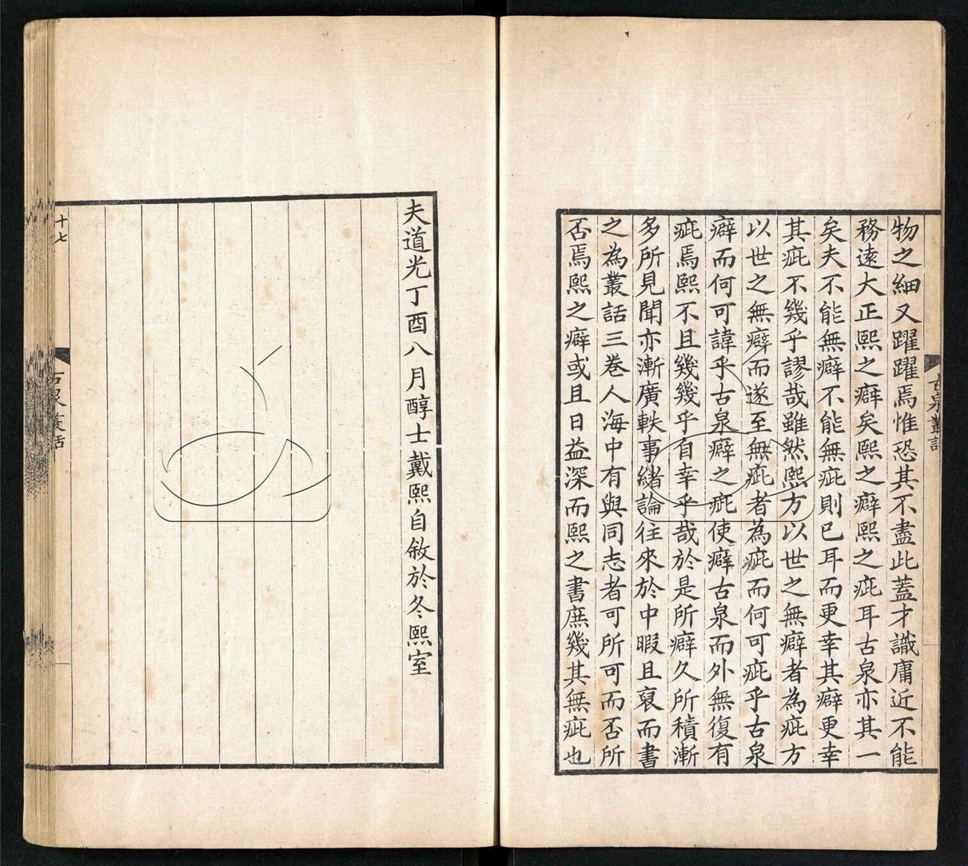 物之細又躍躍焉惟恐其不盡此蓋才識庸近不能
務遠大正熙之癖矣熙之癖熙之疵耳古泉亦其一
矣夫不能無癖不能無疵則已耳而更幸其癖更幸
其疵不幾乎謬哉雖然熙方以世之無癖者為疵方
以世之無癖而遂至無疵者為疵而何可疵乎古泉
癖而何可諱乎古泉癖之疵使癖古泉而外無復有
疵焉熙不且幾幾乎自幸乎哉於是所癖久所積漸
多所見聞亦漸廣軼事緒論往來於中暇且裒而書
之為叢話三卷人海中有與同志者可所可而否所
否焉熙之癖或且日益深而熙之書庶幾其無疵也
古泉叢話
夫道光丁酉八月醇士戴熙自敘於冬熙室
古泉叢話
十七